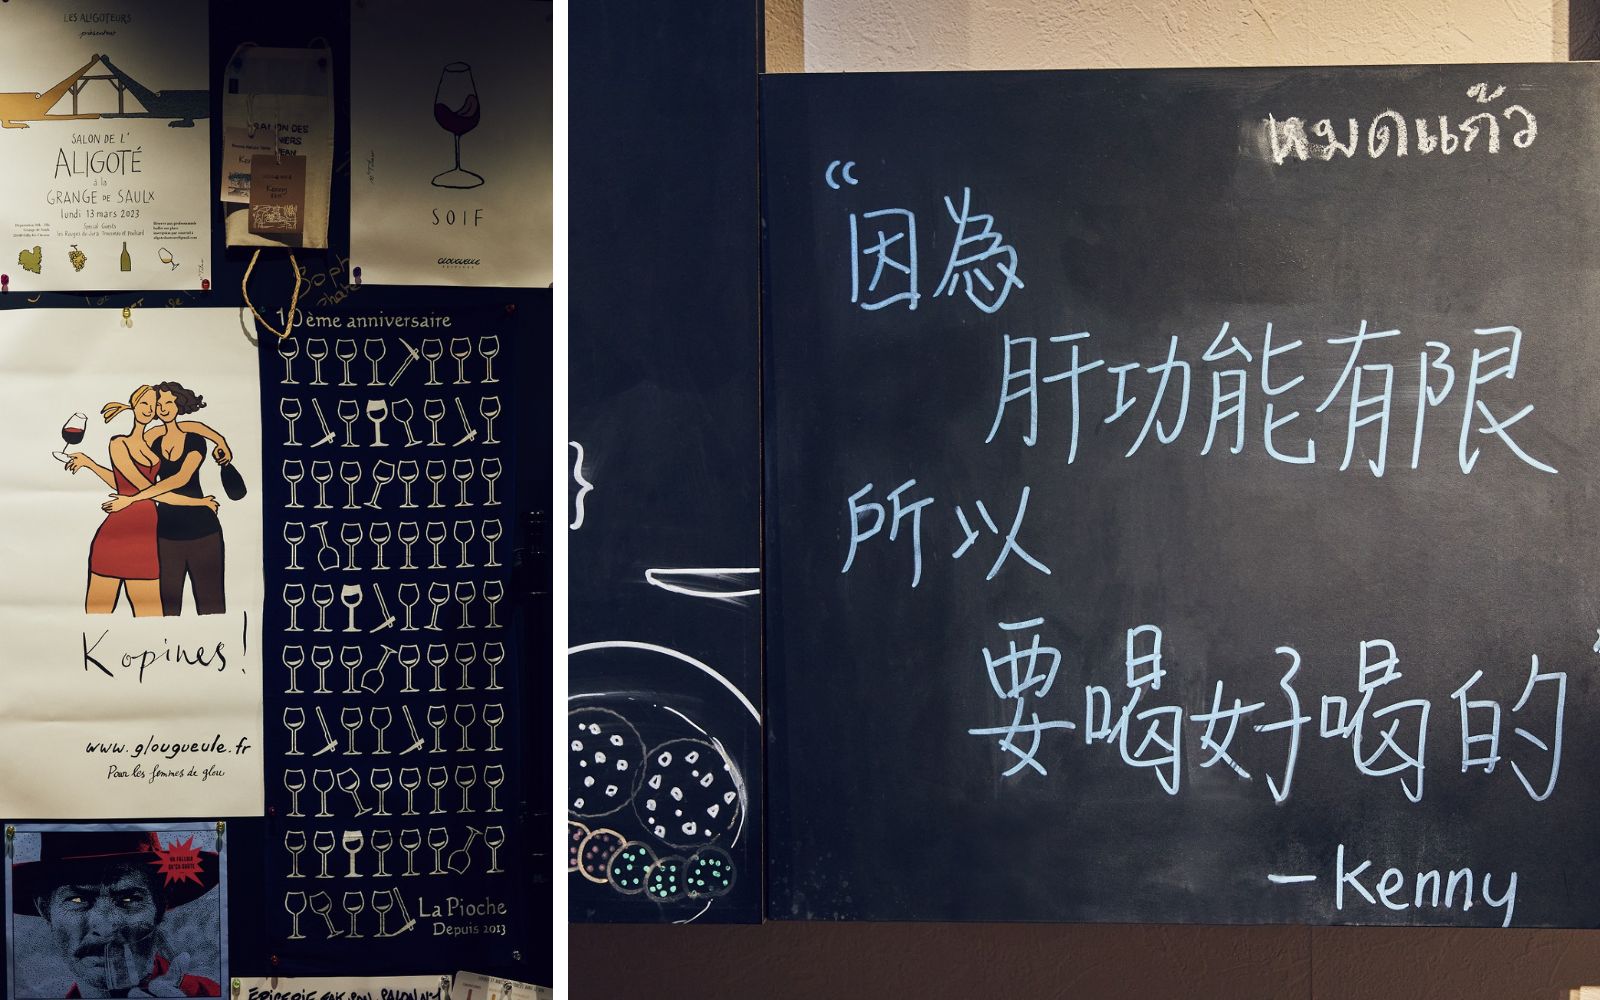 LES ALIGOTEURS
présentent
SALON DE L'
ALIGOTÉ
à la
GRANGE DE SAULX
lundi 13 mars 2023
Special Guests
SALON DES
Kenny
SOIF
GLOUGUEULE
10ème anniversaire
Kopines!
www.glougueule.fr
Pour les femmes de glou
La Pioche
Depuis 2013
หมดแก้ว
“因為
肝功能有限
所以
要喝好喝的
- Kenny